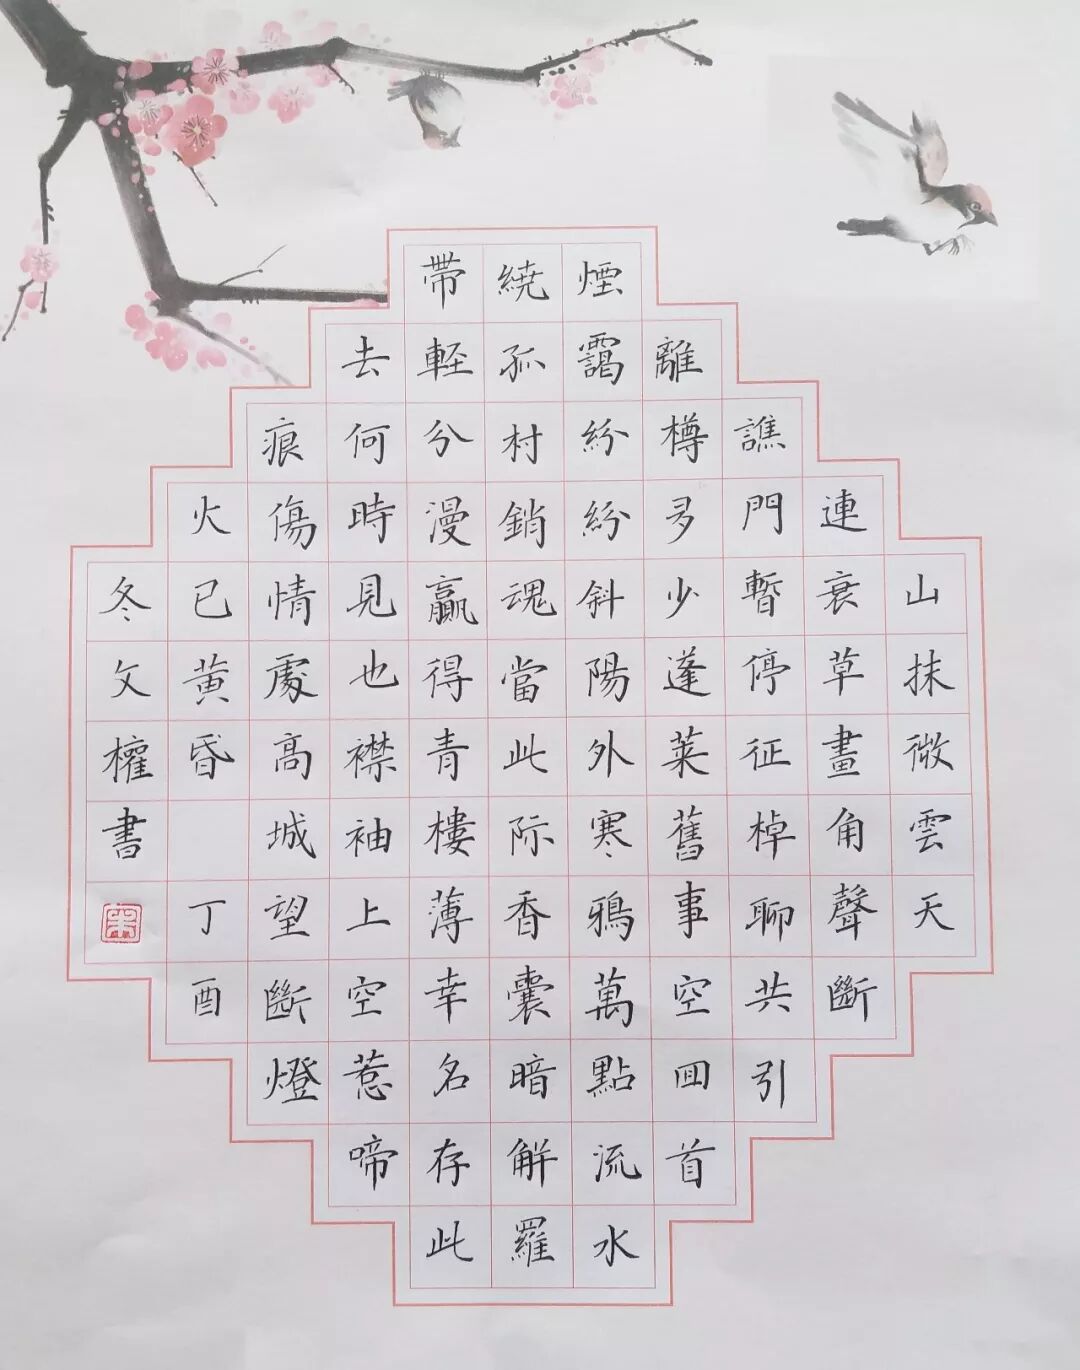 山抹微雲天
連衰草畫角聲斷
譙門暫停征棹聊共引
離樽多少蓬莱舊事空囬首
煙靄紛紛斜陽外寒鴉萬點流水
繞孤村銷魂當此际香囊暗解羅
帶軽分漫贏得青樓薄幸名存此
去何時見也襟袖上空惹啼
痕傷情處高城望斷燈
火已黄昏 丁酉
冬文權書